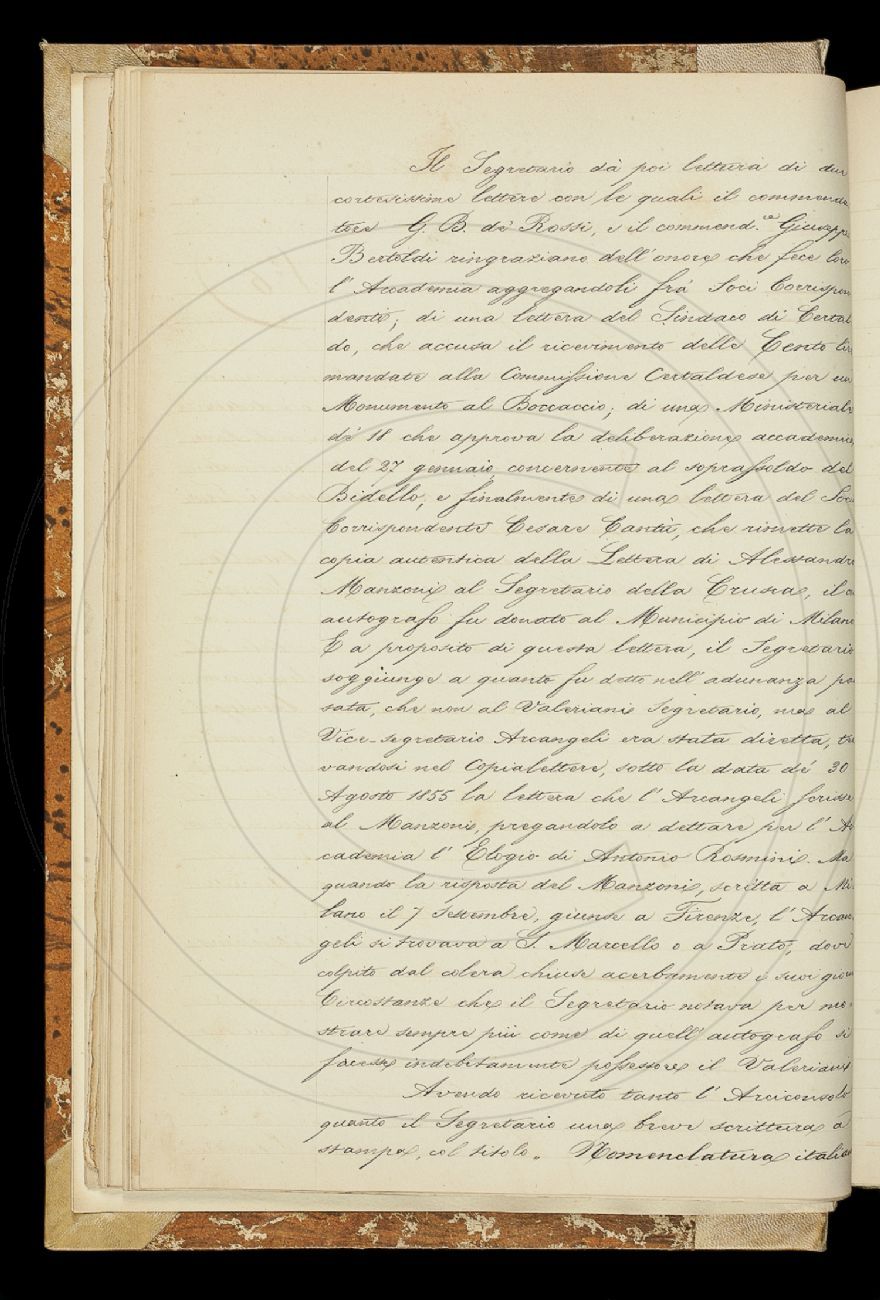 Il Segretario dà poi lettura di due
cortesissime lettere con le quali il commenda
tore G. B. de' Rossi, e il commend.re Giuseppe
Bertoldi ringraziano dell'onore che fece loro
l'Accademia aggregandoli fra' Soci Corrispon
denti; di una lettera del Sindaco di Certal
do, che accusa il ricevimento delle Cento lire
mandate alla Commissione Certaldese per un
Monumento al Boccaccio; di una Ministeriale
de' 18 che approva la deliberazione accademica
del 27 gennaio, concernente al soprassoldo del
Bidello, e finalmente di una lettera del Socio
Corrispondente Cesare Cantù, che rimette la
copia autentica della Lettera di Alessandro
Manzoni al Segretario della Crusca, il cui
autografo fu donato al Municipio di Milano
E a proposito di questa lettera, il Segretario
soggiunge a quanto fu detto nell'adunanza pas
sata, che non al Valeriani Segretario, ma al
Vice-segretario Arcangeli era stata diretta, tro
vandosi nel Copialettere, sotto la data de' 30
Agosto 1855 la lettera che l'Arcangeli scrisse
al Manzoni, pregandolo a dettare per l'Ac
cademia l'Elogio di Antonio Rosmini. Ma
quando la risposta del Manzoni, scritta a Mi
lano il 7 Settembre, giunse a Firenze, l'Arcan
geli si trovava a S. Marcello o a Prato, dove
colpito dal colera chiuse acerbamente i suoi giorni
Circostanze che il Segretario notava per mo
strare sempre più come di quell'autografo si
facesse indebitamente possessore il Valeriani
Avendo ricevuto tanto l'Arciconsolo
quanto il Segretario una breve scrittura a
stampa, col titolo „ Nomenclatura italiana